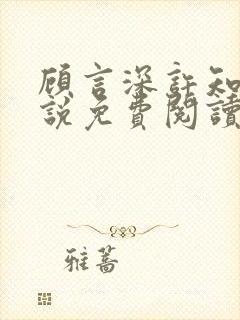 顾言深許知
說免費閱讀
雅蒿